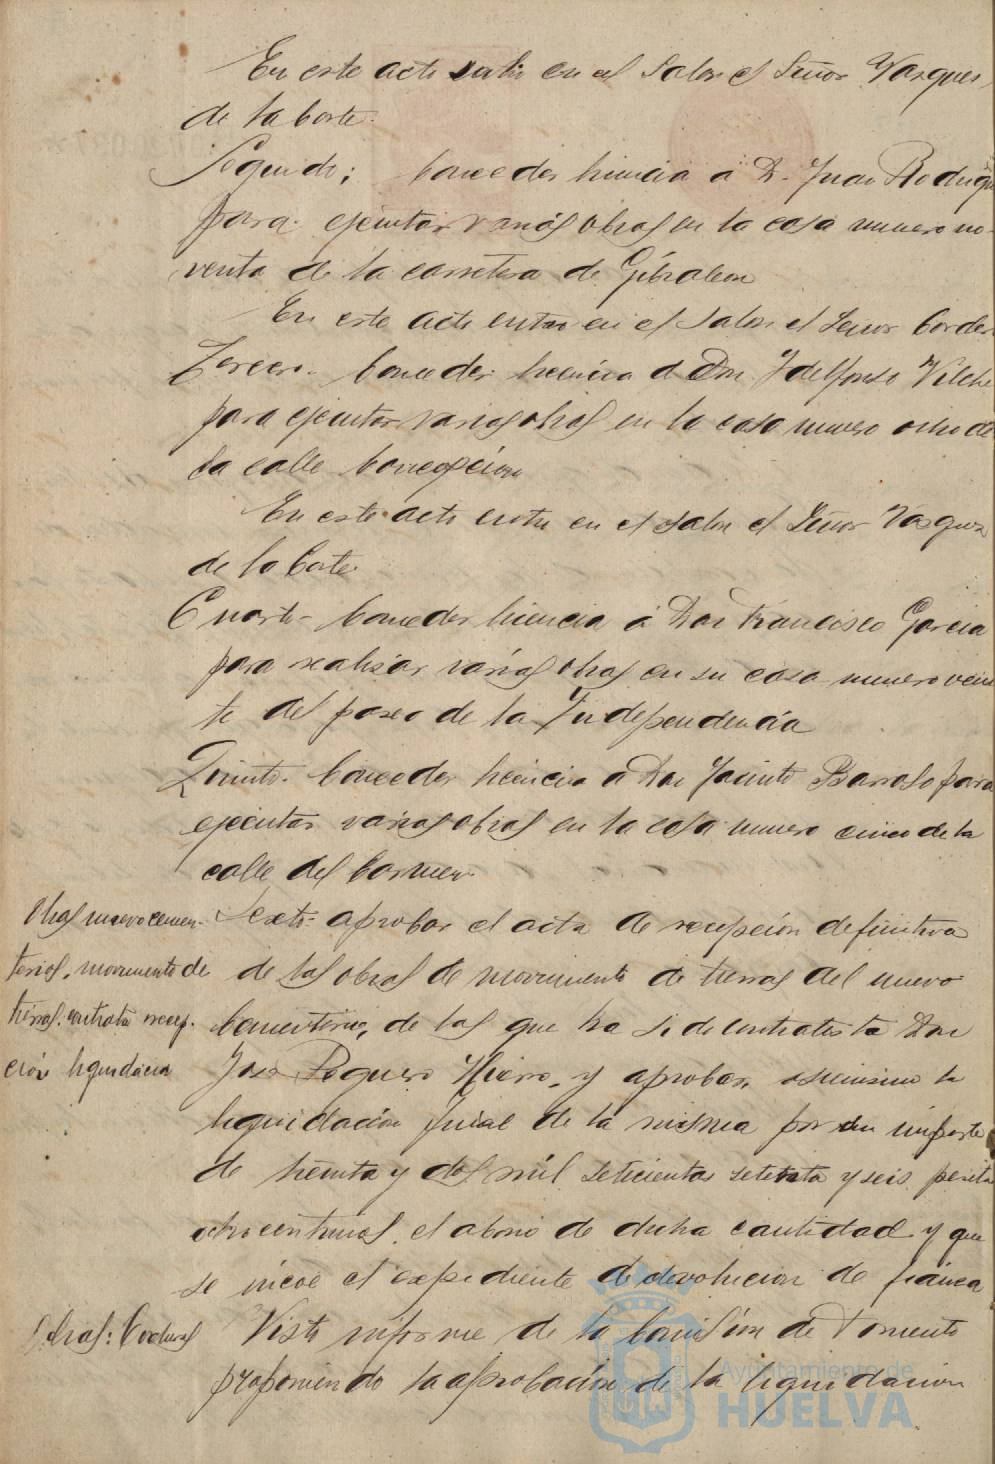 En este acto salio en el Salon el Señor Vasques
de la Corte.
Segundo; Conceder licencia á D. Juan Rodrigu
para ejecutar varias obras en la casa numero no-
venta de la carretera de Gibraleon
En este acto entra en el salon el Señor Corder
Tercero. Conceder licencia á Don Ydelfonso Vilche
para ejecutar varias obras en la casa numero ocho de
la calle Concepción
En este acto entra en el salon el Señor Vasquez
de la Corte.
Cuarto- Conceder licencia á Don Francisco Garcia
para realizar varias obras en su casa numero vein
te del paseo de la Independencia
Quinto. Conceder licencia á Don Jacinto Barroso para
ejecutar varias obras en la casa numero cinco de la
calle del Carmen.
Obras nuevo cemen-
terios, movimiento de
tierras. contrata recep-
ción liquidacion
Sexto- aprobar el acta de recepción definitiva
de las obras de movimiento de tierras del nuevo
Cementerio, de las que ha sido contratista Don
José Peguero Hierro, y aprobar asimismo la
liquidación final de la misma por un importe
de treinta y dos mil setecientas setenta y seis peseta
ocho centimos, el abono de dicha cantidad y que
se incoe el expediente de devolucion de fianza
Obras:
Visto informe de la Comisión de Fomento
proponiendo la aprobación de la liquidacion
Ayuntamiento de
HUELVA